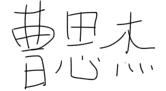 曹思杰